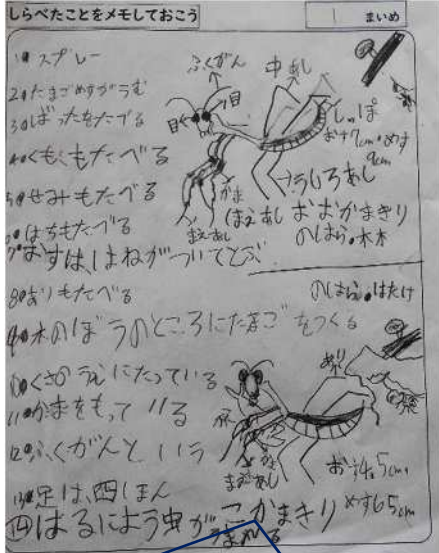 しらべたことをメモしておこう
1 まいめ
1● スプレー
2●たまごめすがうむ
3●ばったをたべる
4●くもをもたべる
5●せみもたべる
6●はちもたべる
7●おすは、はねがついてとぶ
8●ありもたべる
9●木のぼうのところにたまごをつくる
10●くさのうえにたっている
11●かまをもっている
12●ふくがんという
13●足は、四ほん
はるによう虫がうまれる
ふくがん
中あし
目
目
しっぽ
おす7cm・めす9cm
うしろあし
かま
まえあし
まえあし
おおかまきり
のはら・木木
のはら・はたけ
あり
かま
まえあし
おす4.5cm
めす6.5cm
こかまきり